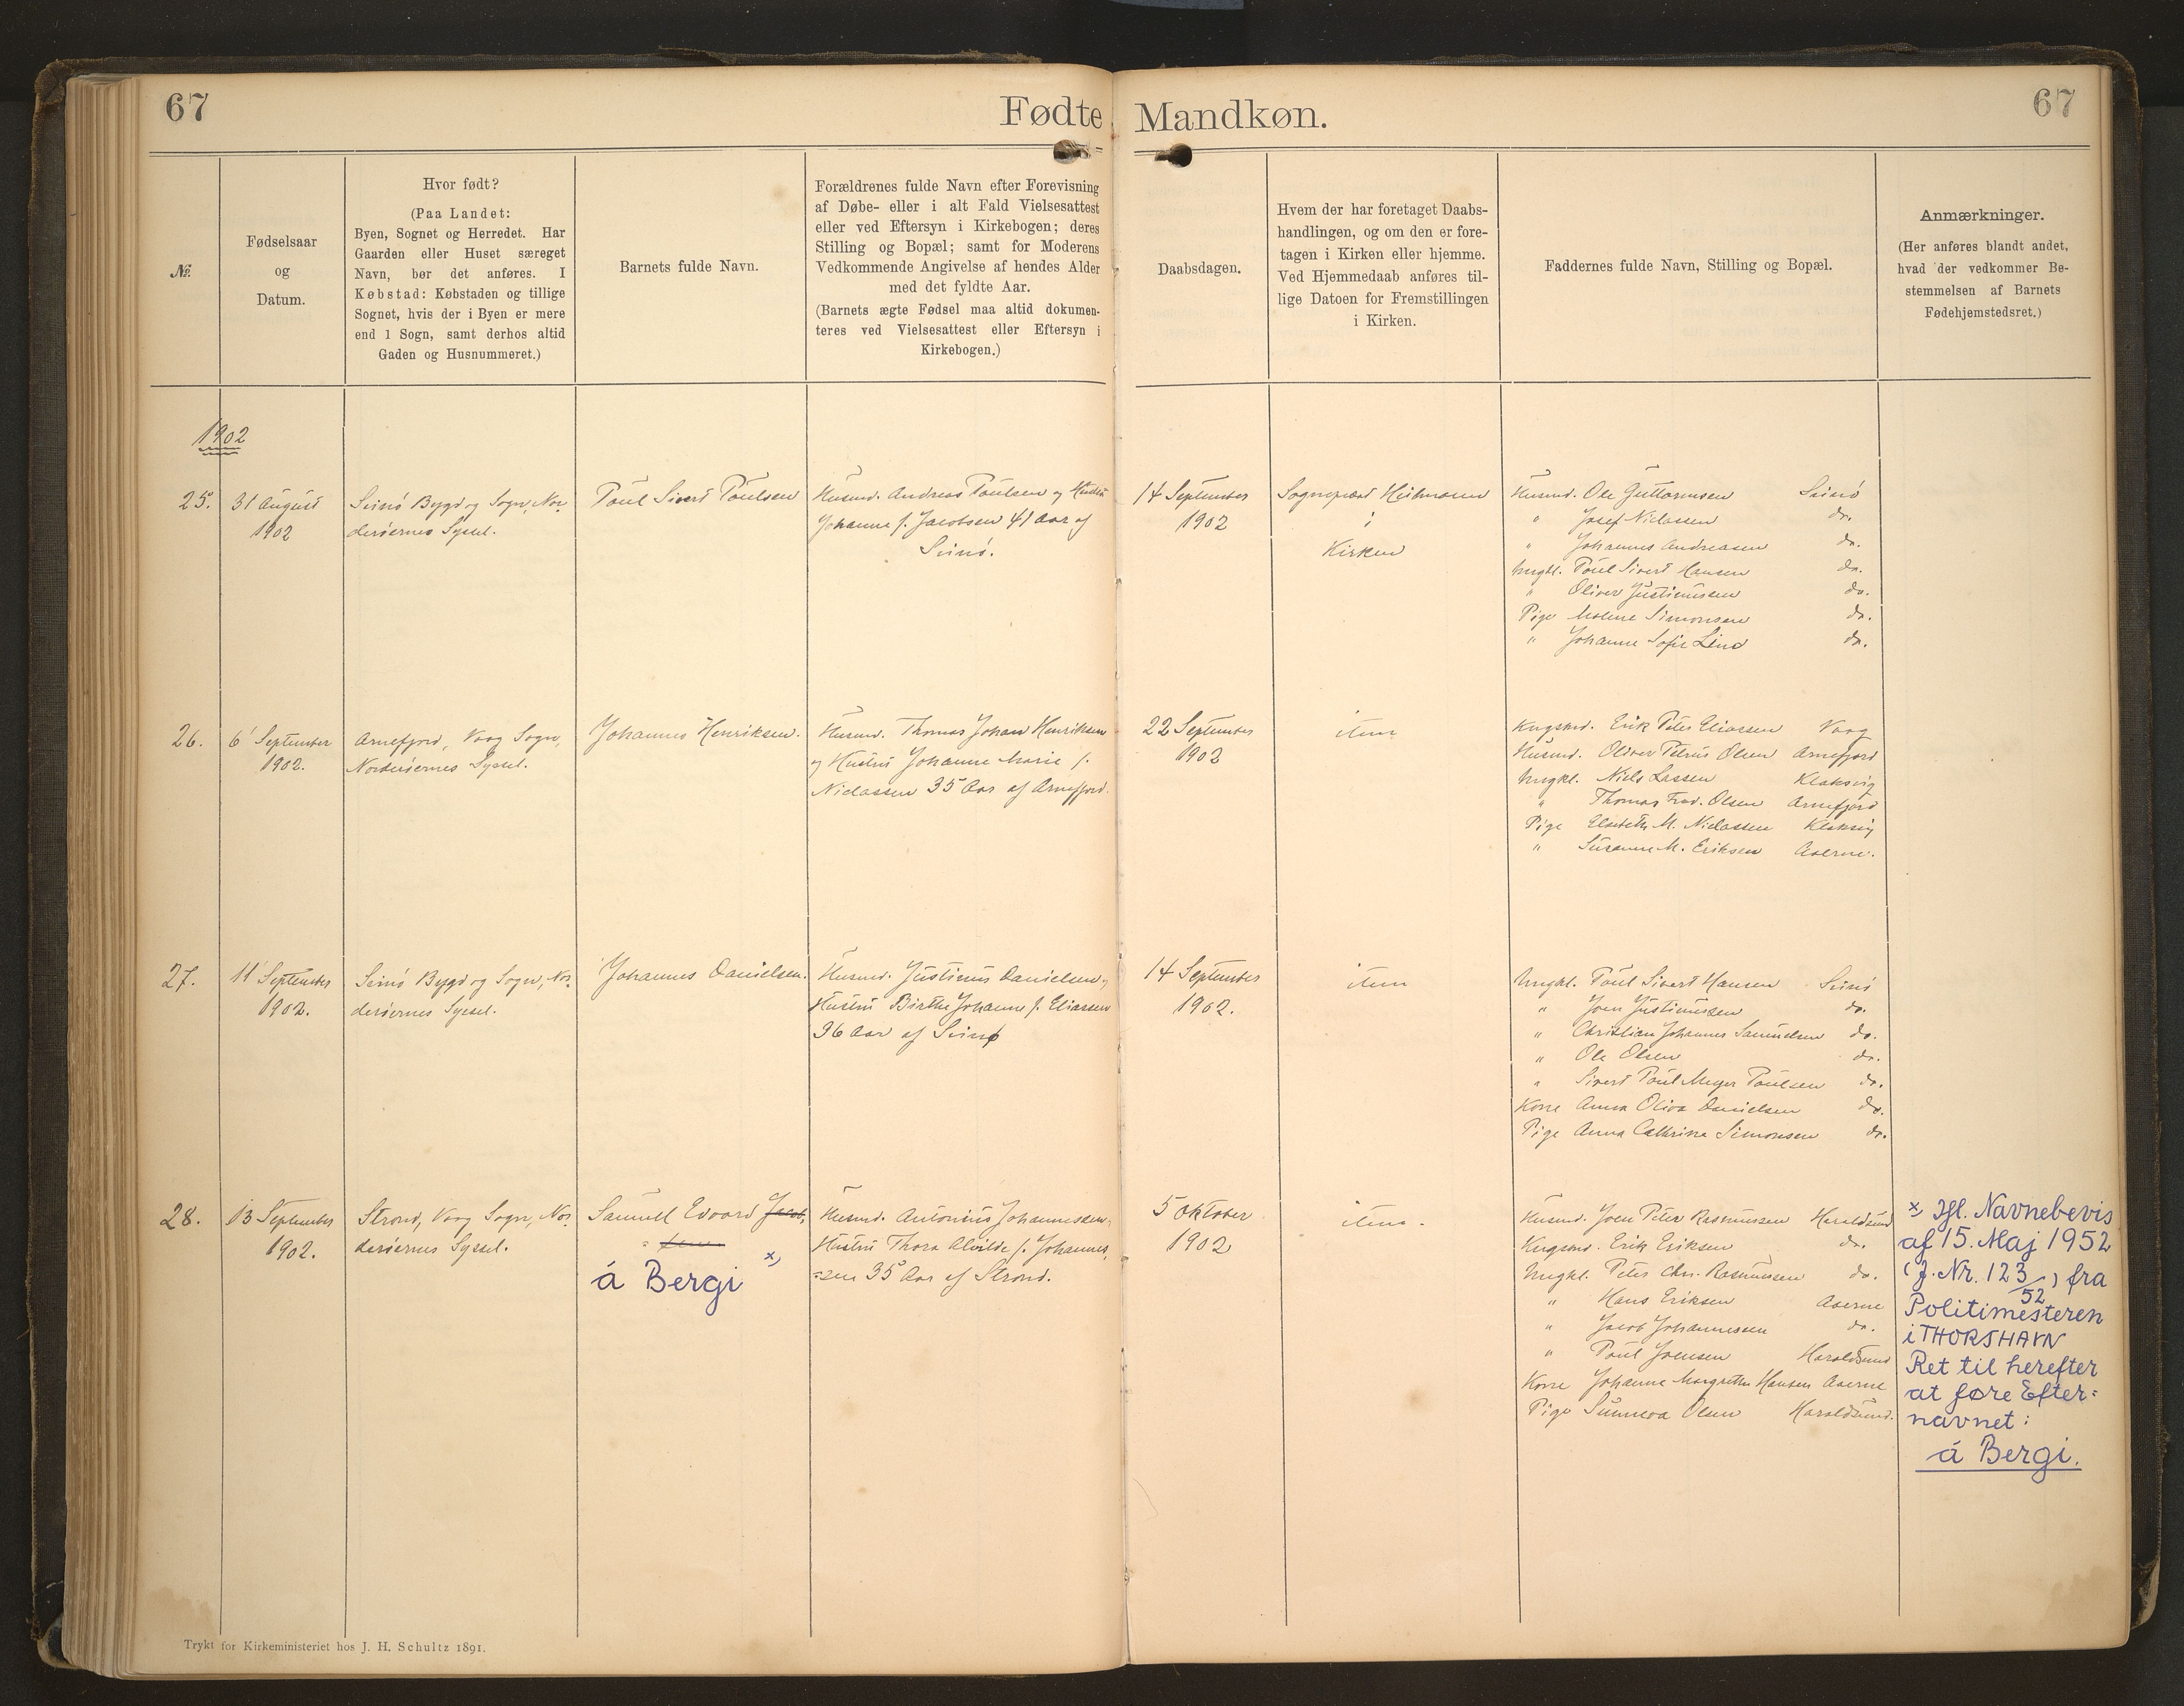 67
Fødte Mandkøn.
67
№
Fødselsaar
og
Datum.
Hvor født?
(Paa Landet:
Byen, Sognet og Herredet. Har
Gaarden eller Huset særeget
Navn, bør det anføres. I
Købstad: Købstaden og tillige
Sognet, hvis der i Byen er mere
end 1 Sogn, samt derhos altid
Gaden og Husnummeret.)
Barnets fulde Navn.
Forældrenes fulde Navn efter Forevisning
af Døbe- eller i alt Fald Vielsesattest
eller ved Eftersyn i Kirkebogen; deres
Stilling og Bopæl; samt for Moderens
Vedkommende Angivelse af hendes Alder
med det fyldte Aar.
(Barnets ægte Fødsel maa altid dokumen-
teres ved Vielsesattest eller Eftersyn i
Kirkebogen.)
Daabsdagen.
Hvem der har foretaget Daabs-
handlingen, og om den er fore-
tagen i Kirken eller hjemme.
Ved Hjemmedaab anføres til-
lige Datoen for Fremstillingen
i Kirken.
Faddernes fulde Navn, Stilling og Bopæl.
Anmærkninger.
(Her anføres blandt andet,
hvad der vedkommer Be-
stemmelsen af Barnets
Fødehjemstedsret.)
1902
25.
31 August
1902
Svinö Bygd og Sogn, Nor-
deröernes Syssel.
Poul Sivert Poulsen
Husmd. Andreas Poulsen og Hustru
Johanne f. Jacobsen 41 Aar af
Svinö.
14 September
1902
Sognepræst Heilmann
i
Kirken
Husmd. Ole Guttormsen Svinö
" Josef Niclassen do.
" Johannes Andreasen do.
Ungkl. Poul Sivert Hansen do.
" Oliver Justinussen do.
Pige Malene Simonsen do.
" Johanne Sofie Lind do.
26.
6 September
1902.
Arnefjord, Vaag Sogn,
Norderöernes Syssel.
Johannes Henriksen.
Husmd. Thomas Johan Henriksen
og Hustru Johanne Marie f.
Niclassen 35 Aar af Arnefjord.
22 September
1902
item
Kngsmd. Erik Peter Eliassen Vaag
Husmd. Oliver Petrus Olsen Arnefjord
Ungkl. Niels Lassen Klaksvig
" Thomas Fred. Olsen Arnefjord
Pige Elsebeth M. Niclassen Klaksvig
" Susanne M. Eriksen Aaerne.
27.
11 September
1902.
Svinö Bygd og Sogn, Nor-
deröernes Syssel.
Johannes Danielsen.
Husmd. Justinus Danielsen og
Hustru Birthe Johanne f. Eliassen
36 Aar af Svinø
14 September
1902.
item
Ungkl. Poul Sivert Hansen Svinö
" Joen Justinussen do.
" Christian Johannes Samuelsen do.
" Ole Olsen do.
" Sivert Poul Meyer Poulsen do.
Kone Anna Oliva Danielsen do.
Pige Anna Cathrina Simonsen do.
28.
13 September
1902.
Strond, Vaag Sogn, Nor-
deröernes Syssel.
Samuel Edvard Jacob-
sen
á Bergi x)
Husmd. Antonius Johannessen,
Hustru Thora Alvilde f. Johannes-
=sen 35 Aar af Strond.
5 Oktober
1902
item.
Husmd. Joen Peter Rasmussen Haraldsund
Kngsmd. Erik Eriksen do.
Ungkl. Peter Chr. Rasmussen do.
" Hans Eriksen Aaerne
" Jacob Johannessen do.
" Poul Joensen Haraldsund
Kone Johanne Margrethe Hansen Aaerne
Pige Sunneva Olsen Haraldsund.
x) Ifl. Navnebevis
af 15. Maj 1952
(J. Nr. 123/52) fra
Politimesteren
i THORSHAVN
Ret til herefter
at føre Efter=
navnet:
á Bergi.
Trykt for Kirkeministeriet hos J. H. Schultz 1891.